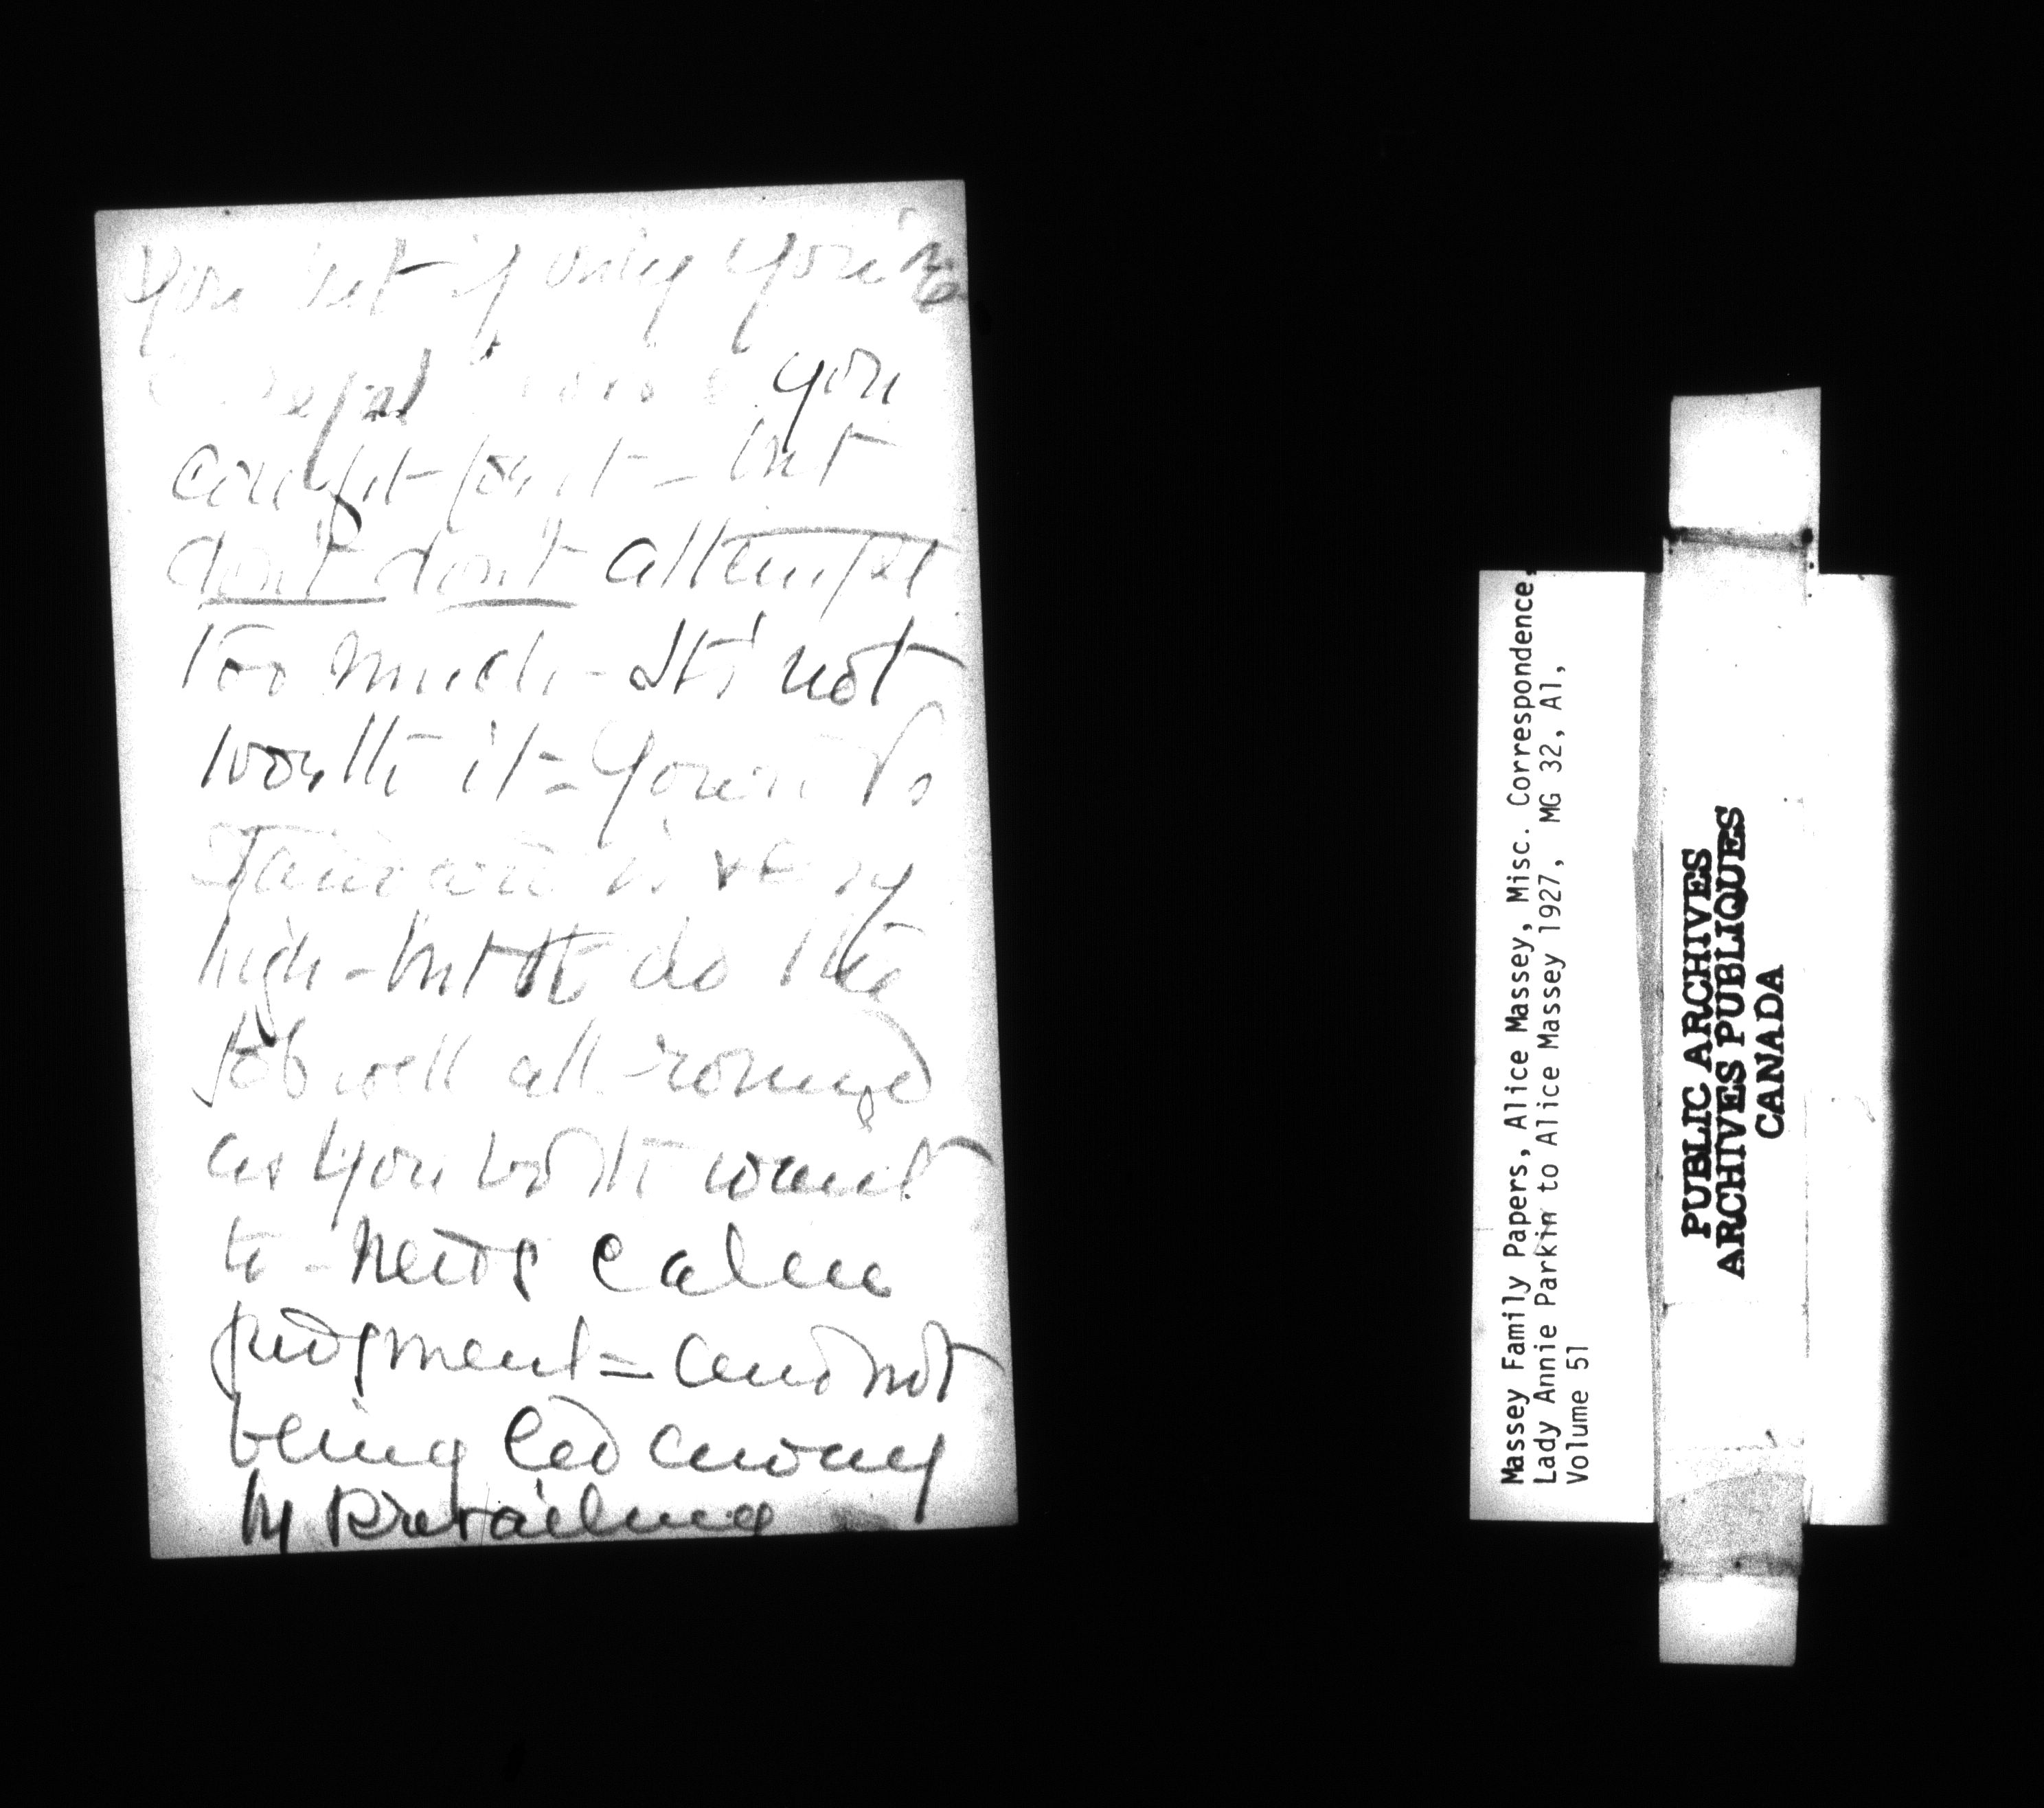 You but if only you'll
careful you
caught for it - but
don't don't attempt
too much - It's not
worth it = Your
Standard is very
high - but to do the
job well all round
as you both want
to - needs calm
judgment = and not
being led away
by
Massey Family Papers, Alice Massey, Misc. Correspondence,
Lady Annie Parkin to Alice Massey 1927, MG 32, A1,
Volume 51
PUBLIC ARCHIVES
ARCHIVES PUBLIQUES
CANADA